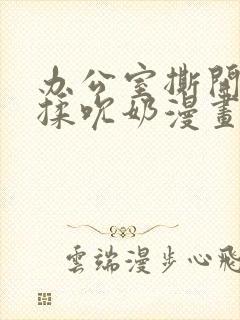 办公室撕開
揉吹奶漫畫
雲端漫步心飛